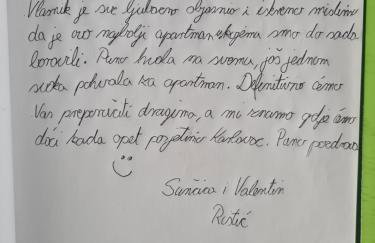 Vlasnik je sve ljubazno objasnio i iskreno mislimo
da je ovo najbolji apartman u kojima smo do sada
boravili. Puno hvala na svemu, još jednom
svaka pohvala za apartman. Definitivno ćemo
Vas preporučiti dragima, a mi znamo gdje ćemo
doći kada opet posjetimo Karlovac. Puno pozdrava
Sunčica i Valentin
Ristić